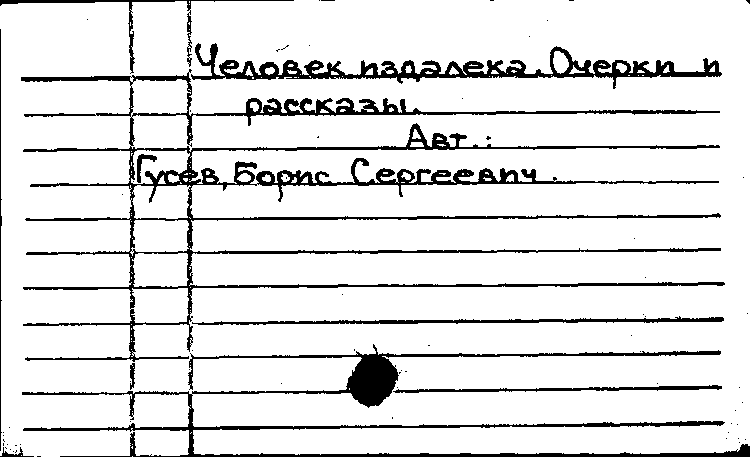 Человек издалека. Очерки и
рассказы.
Авт.:
Гусев, Борис Сергеевич.